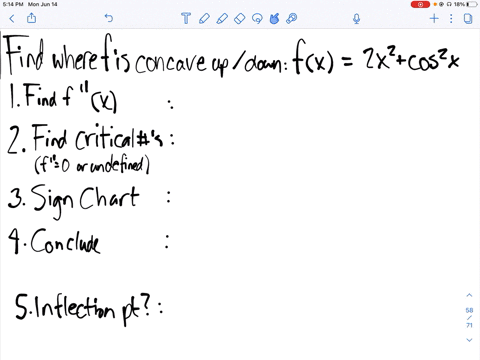 5:14 PM Mon Jun 14
18%
Find where f is concave up/down: f(x) = 2x²+cos²x
1. Find f"(x) :
2. Find critical #'s :
(f"=0 or undefined)
3. Sign Chart :
4. Conclude :
5. Inflection pt? :
58
/
71